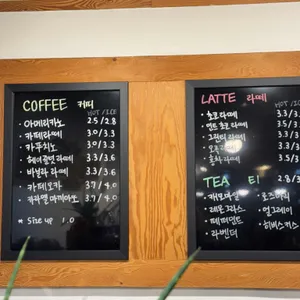 COFFEE 커피
HOT / ICE
· 아메리카노 2.5 / 2.8
· 카페라떼 3.0 / 3.3
· 카푸치노 3.0 / 3.3
· 헤이즐넛 라떼 3.3 / 3.6
· 바닐라 라떼 3.3 / 3.6
· 카페모카 3.7 / 4.0
· 카라멜 마끼아또 3.7 / 4.0
* Size up 1.0
LATTE 라떼
HOT
· 초코 라떼 3.3
· 민트 초코 라떼 3.5
· 그린티 라떼 3.3
· 라떼 3.3
· 홍차 라떼 3.5
TEA 티 2.8
· 캐모마일 · 로즈마리
· 레몬그라스 · 얼그레이
· 페퍼민트 · 히비스커스
· 라벤더